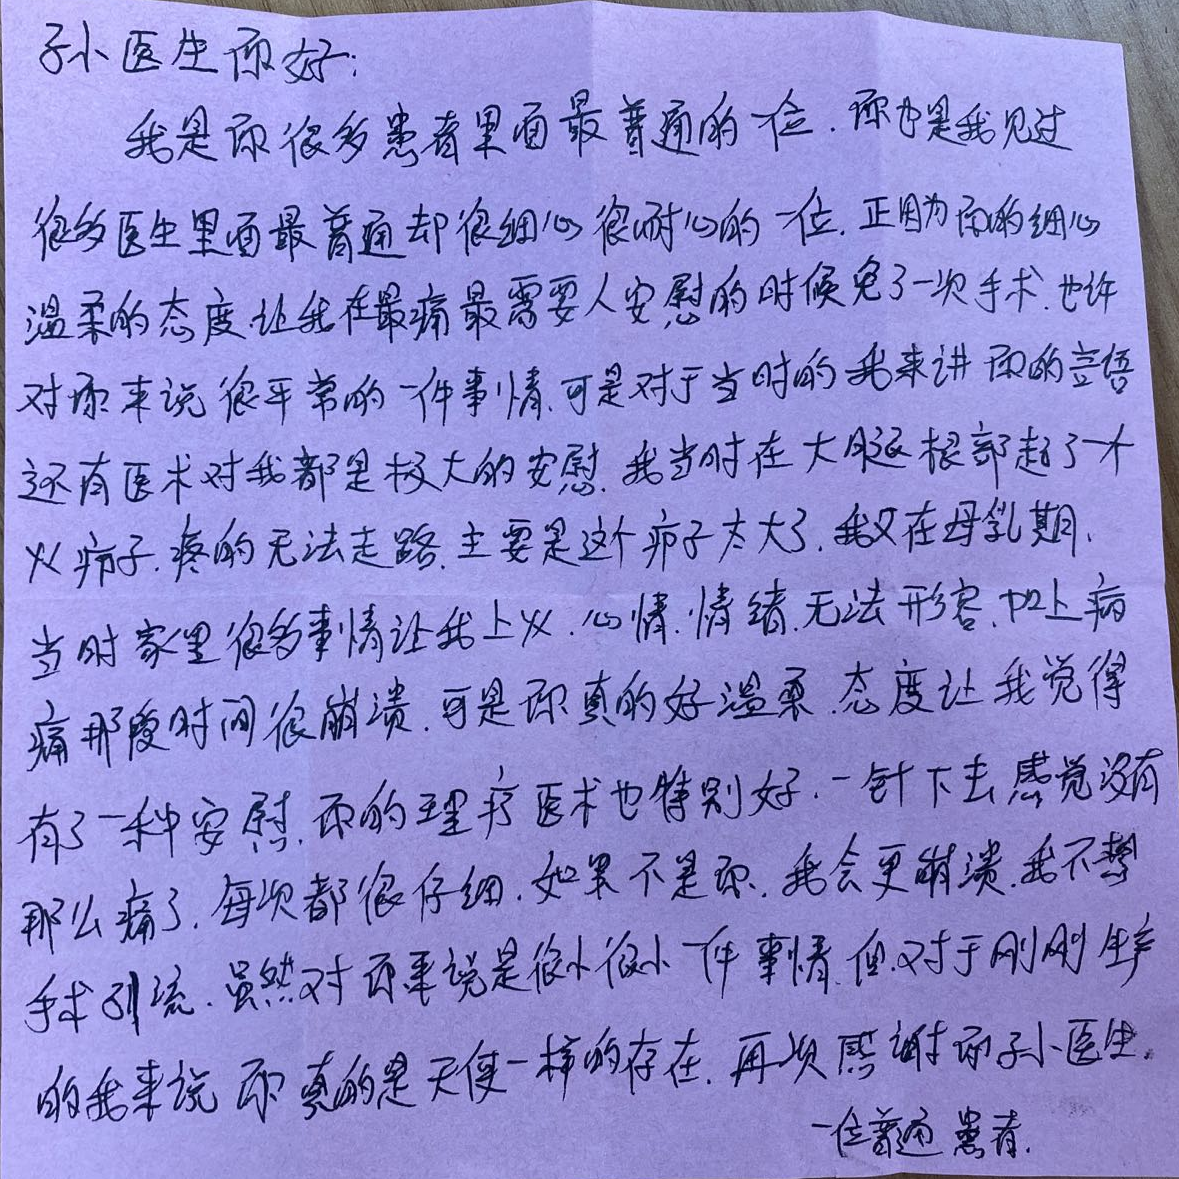 孙医生你好:
我是你很多患者里面最普通的一位.你也是我见过
很多医生里面最普通却很细心很耐心的一位.正因为你的细心
温柔的态度.让我在最痛最需要人安慰的时候免了一次手术.也许
对你来说很平常的一件事情.可是对于当时的我来讲你的言语
还有医术对我都是极大的安慰.我当时在大腿根部起了一个
火疖子.疼的无法走路.主要是这个疖子太大了.我又在母乳期.
当时家里很多事情让我上火.心情.情绪.无法形容.加上病
痛那段时间很崩溃.可是你真的好温柔.态度让我觉得
有了一种安慰.你的理疗医术也特别好.一针下去感觉没有
那么痛了.每次都很仔细.如果不是你.我会更崩溃.我不想
手术引流.虽然对你来说是很小很小一件事情.但对于刚刚生产
的我来说你真的是天使一样的存在.再次感谢你孙医生.
一位普通患者.